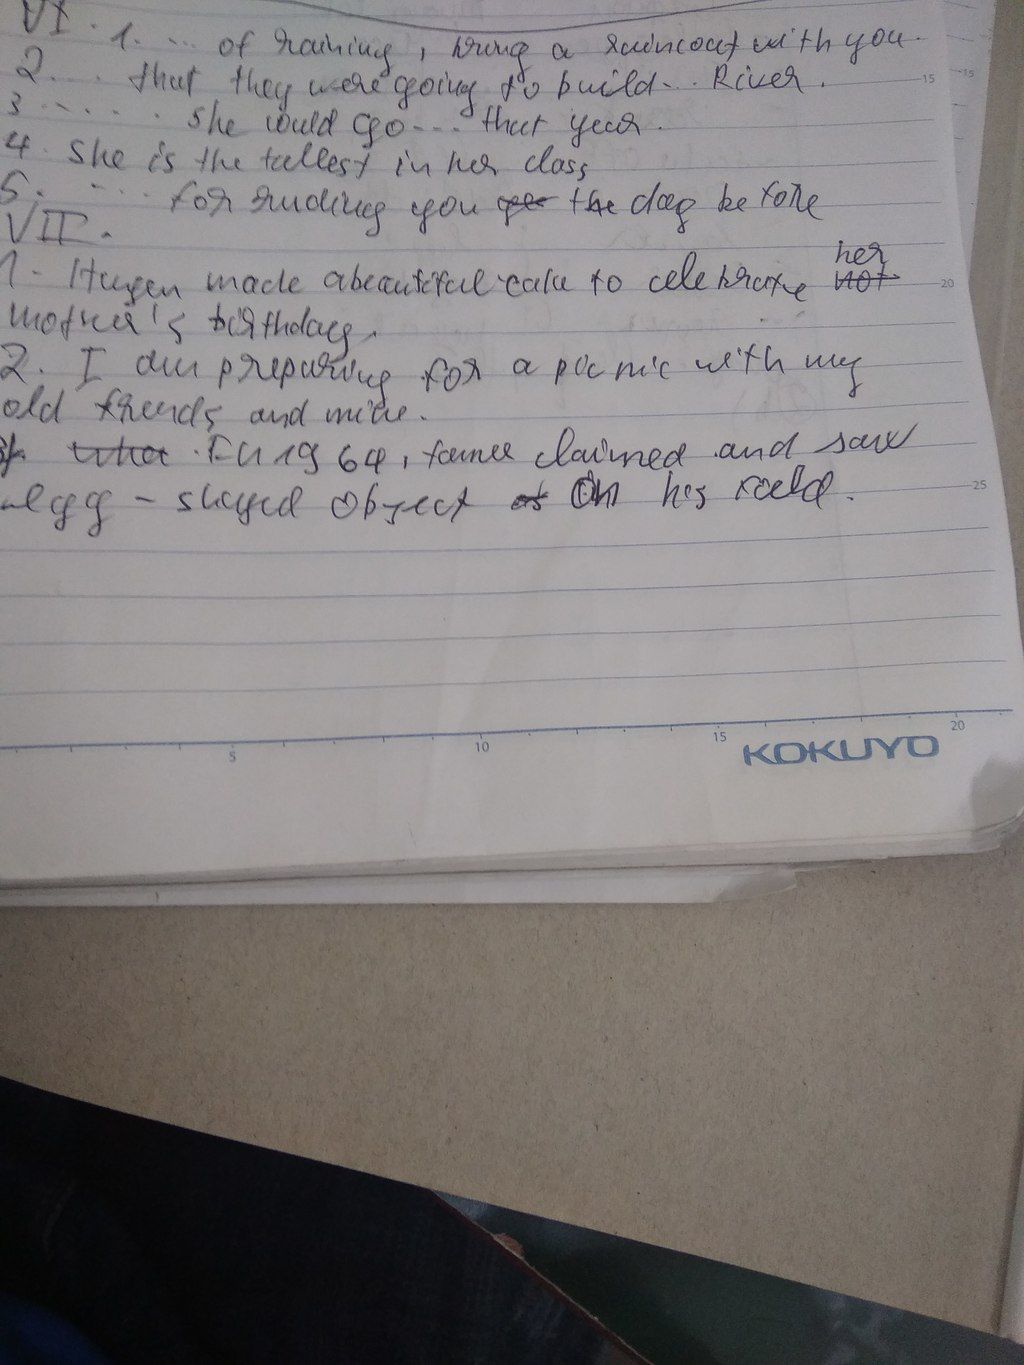 VI. 1. ... of raining, bring a raincoat with you.
2.... that they were going to build... River.
3 ..... She would go... that year.
4. She is the tallest in her class
5. .... for sending you the day before
VII.
her
1- Huyen made a beautiful cake to celebrate not
mother's birthday.
2. I am preparing for a picnic with my
old friends and mine.
In 1964, claimed and saw
egg - shaped object in his field.
15
15
20
25
5
10
15
20
KOKUYO